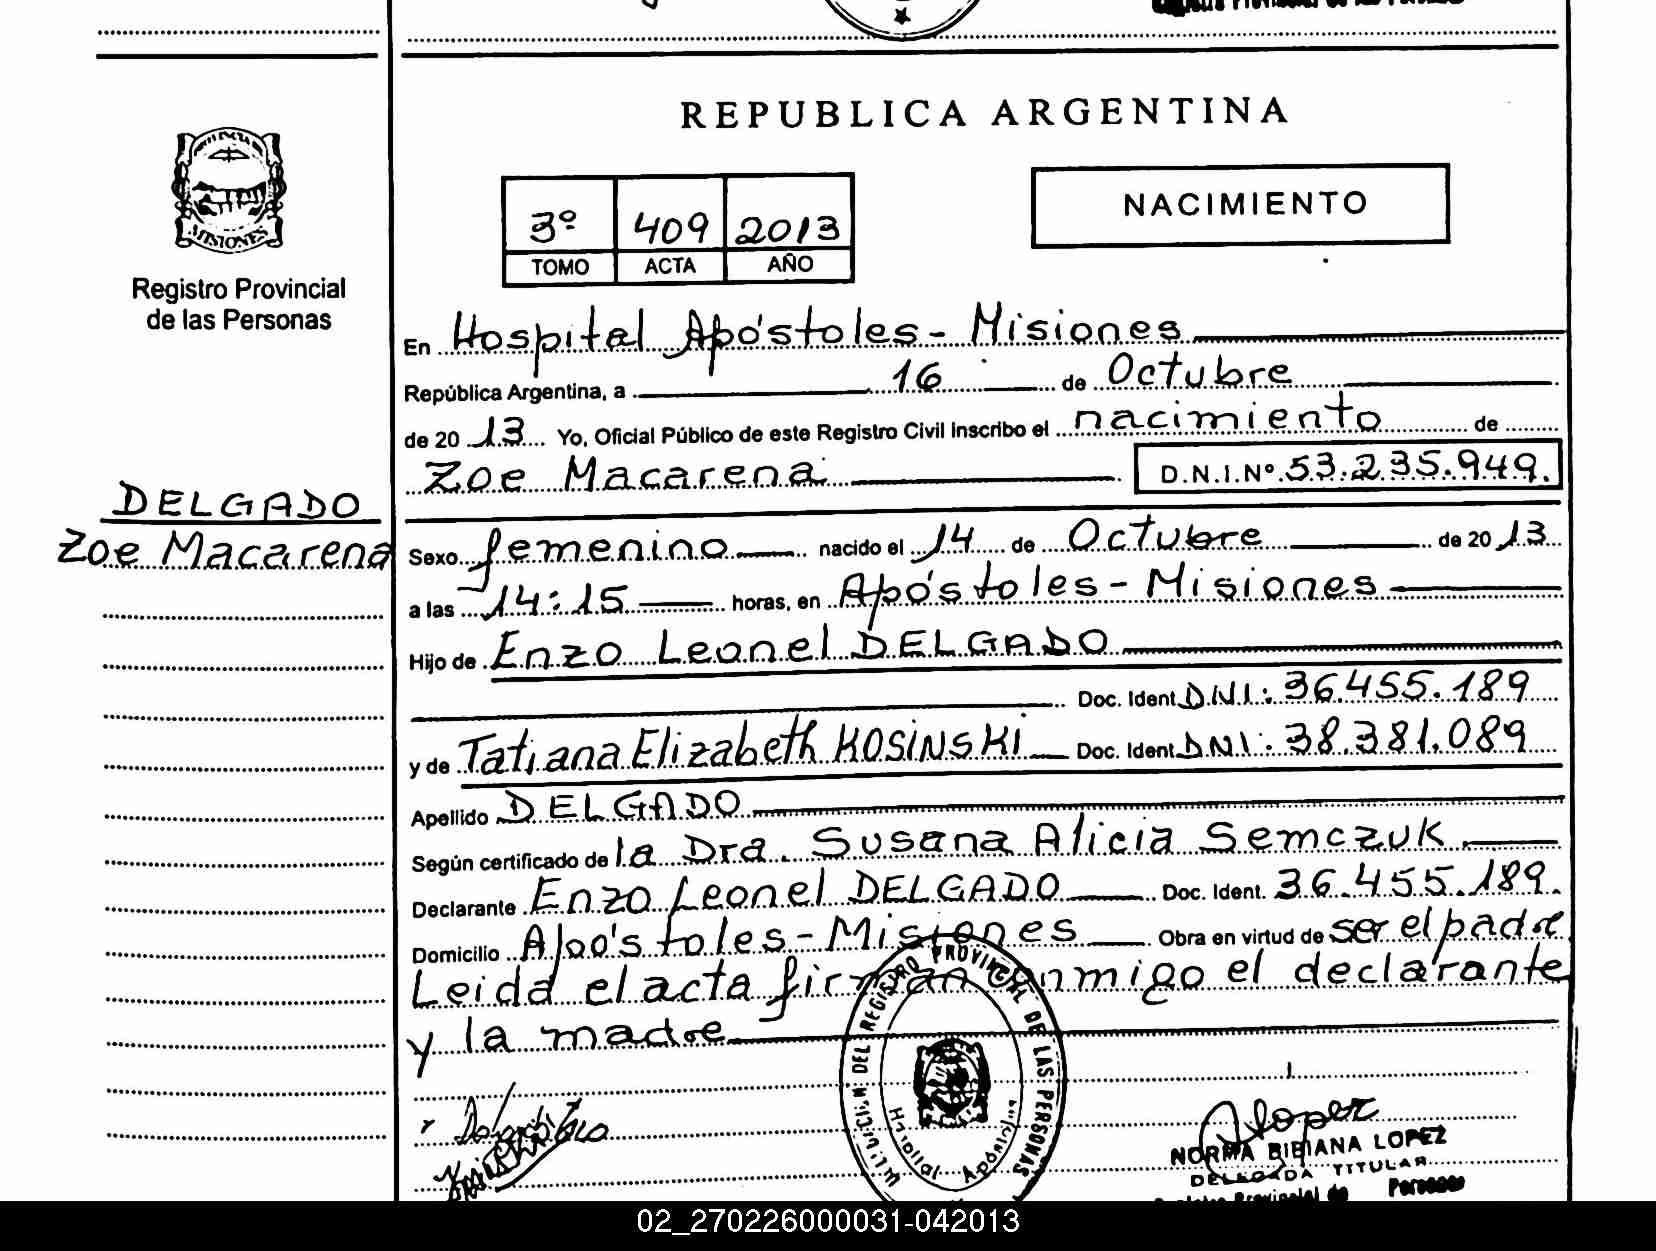 REPUBLICA ARGENTINA
NACIMIENTO
3º 409 2013
TOMO ACTA AÑO
MISIONES
Registro Provincial
de las Personas
DELGADO
Zoe Macarena
En Hospital Apóstoles - Misiones
República Argentina, a 16 de Octubre
de 2013 Yo, Oficial Público de este Registro Civil Inscribo el nacimiento de
Zoe Macarena D.N.I.Nº 53.235.949.
Sexo femenino nacido el 14 de Octubre de 2013
a las 14:15 horas, en Apóstoles - Misiones
Hijo de Enzo Leonel DELGADO
Doc. Ident. DNI: 36.455.189
y de Tatiana Elizabeth KOSINSKI Doc. Ident. DNI: 38.381.089
Apellido DELGADO
Según certificado de la Dra. Susana Alicia Semczuk
Declarante Enzo Leonel DELGADO Doc. Ident. 36.455.189.
Domicilio Apóstoles - Misiones Obra en virtud de ser el padre
Leida el acta firman conmigo el declarante
y la madre
DEL REGISTRO PROVINCIAL DE LAS PERSONAS
NORMA BIBIANA LOPEZ
DELEGADA TITULAR
Registro Provincial de Personas
02_270226000031-042013